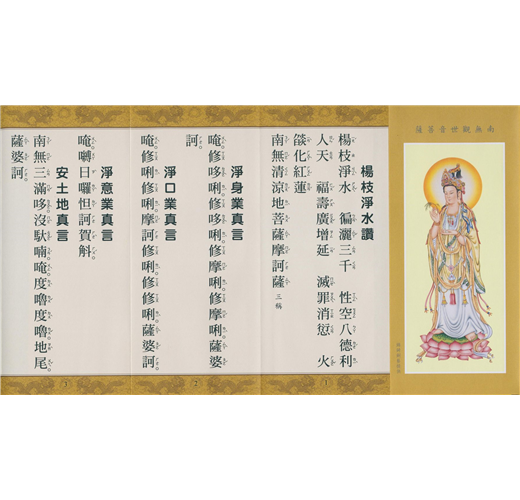 南無觀世音菩薩
楊枝淨水讚
楊枝淨水 徧灑三千 性空八德利
人天 福壽廣增延 滅罪消愆 火
燄化紅蓮
南無清涼地菩薩摩訶薩 三稱
1
淨身業真言
唵修哆唎。修哆唎。修摩唎。修摩唎。薩婆
訶。
淨口業真言
唵修唎。修唎。摩訶修唎。修修唎。薩婆訶。
2
淨意業真言
唵嚩日囉怛訶賀斛。
安土地真言
南無三滿哆。沒馱喃。唵。度嚕度嚕。地尾。
薩婆訶。
3